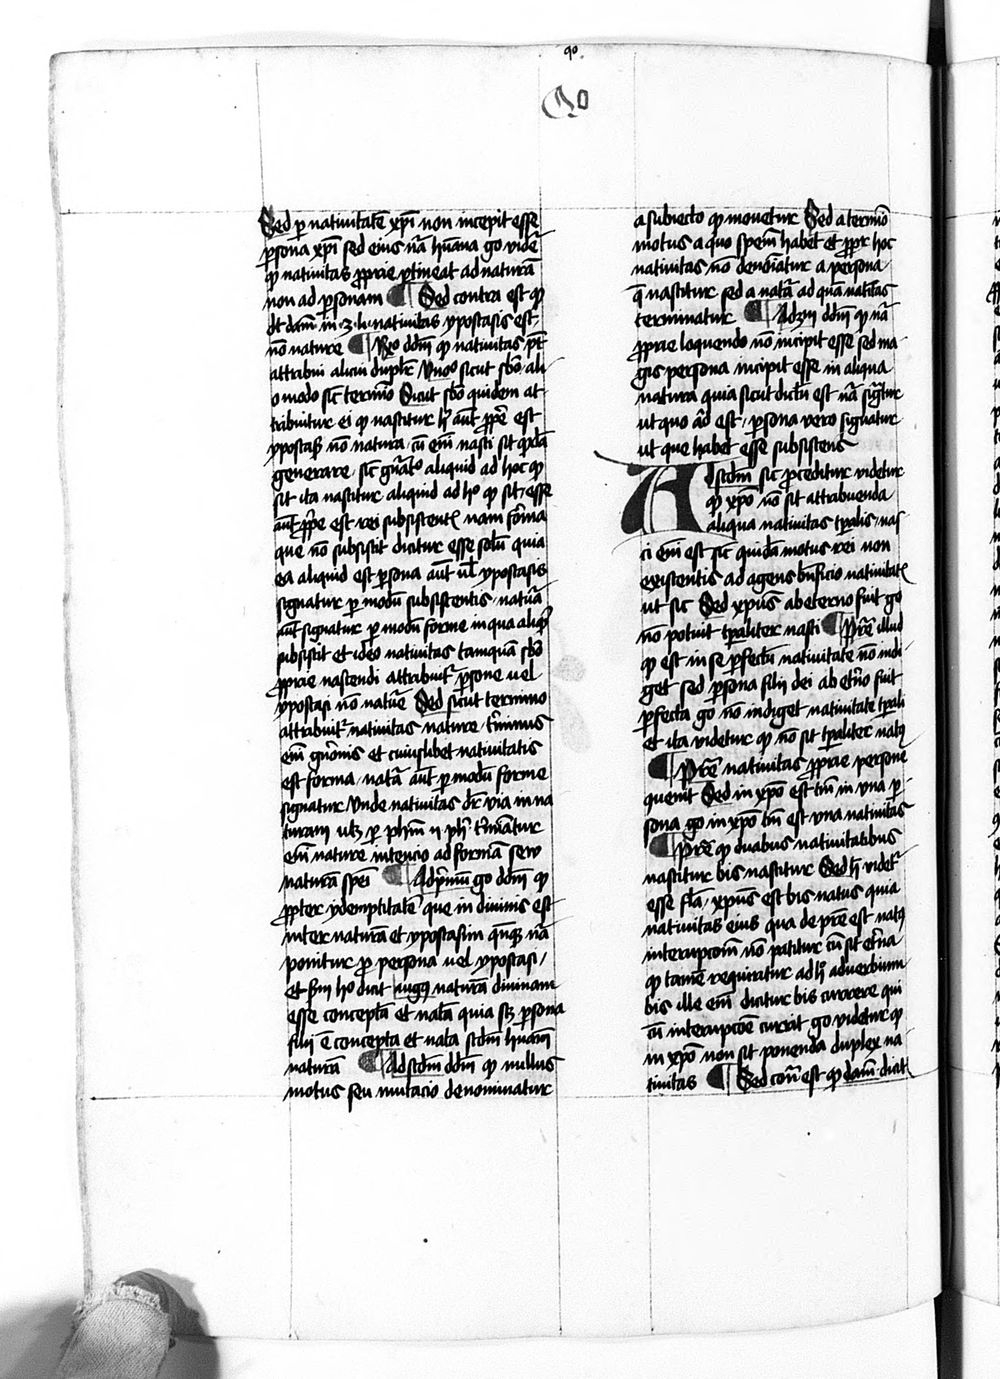 90.
Qo
Sed p nativitatē xp̄i non incepit esse
p̱sona xp̄i sed eius nā hūana g̊ vide͛
q̱ nativitas ꝓprie ꝑtineat ad naturā
non ad ꝑsonam ¶ Sed contra est q̱
dt dam̄ in .3. li. nativitas ypostasis est
nō nature ¶ Rn̄o dd̄m q̱ nativitas pt̄
attribui alicui dupl̄r Uno͛ sicut sb̄o ali
o modo sic̄ termīo Sicut sb̄o quidem at
tribuitur ei q̱ nascitur h̄ aūt ꝓp̄e est
ypostas̄ nō natura cū em̄ nasci sit q̱dā
generare sic̄ gn̄atᵒ aliquid ad hoc q̱
sit ita nascitur aliquid ad hᵒ q̱ sit esse
aūt ꝓp̄e est rei subsistentꝭ nam fōrma
que nō subsistit dicitur esse solū quia
ea aliquid est ꝑsona aūt ul̄ ypostasis
signatur ꝑ modū subsistentis natura
aūt signatur ꝑ modū forme in qua aliq̱
subsistit et ideo nativitas tamquā sb̄o
ꝓprie nascendi attribuit᷑ ꝑsone uel
ypostasi nō nature Sed sicut termino
attribuit᷑ nativitas nature t̄minus
em̄ gn̄onis et cuiuslibet nativitatis
est forma natā aūt ꝑ modū forme
signatur Unde nativitas dr̄ via in na
turam utꝫ ꝑ phm̄ ii ph̄ t̄minatur
em̄ nature intencio ad formā seu
naturā spēi ¶ Ad p̄mū g̊ dd̄m q̱
ꝓpter ydemptitatē que in diuinis est
inter naturā et ypostasim qn̄qꝫ nā
ponitur ꝓ persona uel ypostasi
et sm̄ hᵒ dicit augꝰ naturā diuinam
esse conceptā et natā quia scꝫ ꝑsona
filii ē concepta et nata scd̄m hūanā
naturā ¶ Ad scd̄m dd̄m q̱ nullus
motus seu mutacio denominatur
a subiecto q̱ mouetur Sed a termīo
motus a quo spem̄ habet et ꝓpt̄ hoc
nativitas nō denōiatur a persona
q̄ nascitur sed a natā ad quā nativitas
terminatur ¶ Ad 3m dd̄m q̱ nā
ꝓprie loquendo nō incipit esse sed ma
gis persona incipit esse in aliqua
natura quia sicut dictū est nā signatur
ut quo aɫd est ꝑsona vero signatur
ut que habet esse subsistens
Ad scd̄m sic ꝓceditur videtur
q̱ xp̄o nō sit attribuenda
aliqua nativitas tp̄alis nas
ci em̄ est sic̄ quidā motus rei non
existentis ad agens bn̄ficio nativitatꝭ
ut sit Sed xpūs ab eterno fuit g̊
nō potuit tp̄aliter nasci ¶ Pretē illud
q̱ est in se ꝑfectū nativitate nō indi
get sed ꝑsona filij dei ab et̄no fuit
ꝑfecta g̊ nō indiget nativitate tp̄ali
et ita videtur q̱ nō sit tp̄aliter natꝰ
¶ Pretē nativitas ꝓprie persone
quenit Sed in xp̄o est tm̄ in una ꝑ
sona g̊ in xp̄o tm̄ est una nativitas
¶ Pretē q̱ duabus nativitatibus
nascitur bis nascitur Sed h̄ videt᷑
esse flā xpūs est bis natus quia
nativitas eius qua de pr̄e est natꝰ
interupcom̄ nō patitur cū sit et̄na
q̱ tamē requiratur ad h̄ adverbium
bis ille em̄ dicitur bis currere qui
cū interupcōe currit g̊ videtur q̱
in xp̄o non sit ponenda duplex na
tivitas ¶ Sed con̄ est q̱ dam̄ dicit